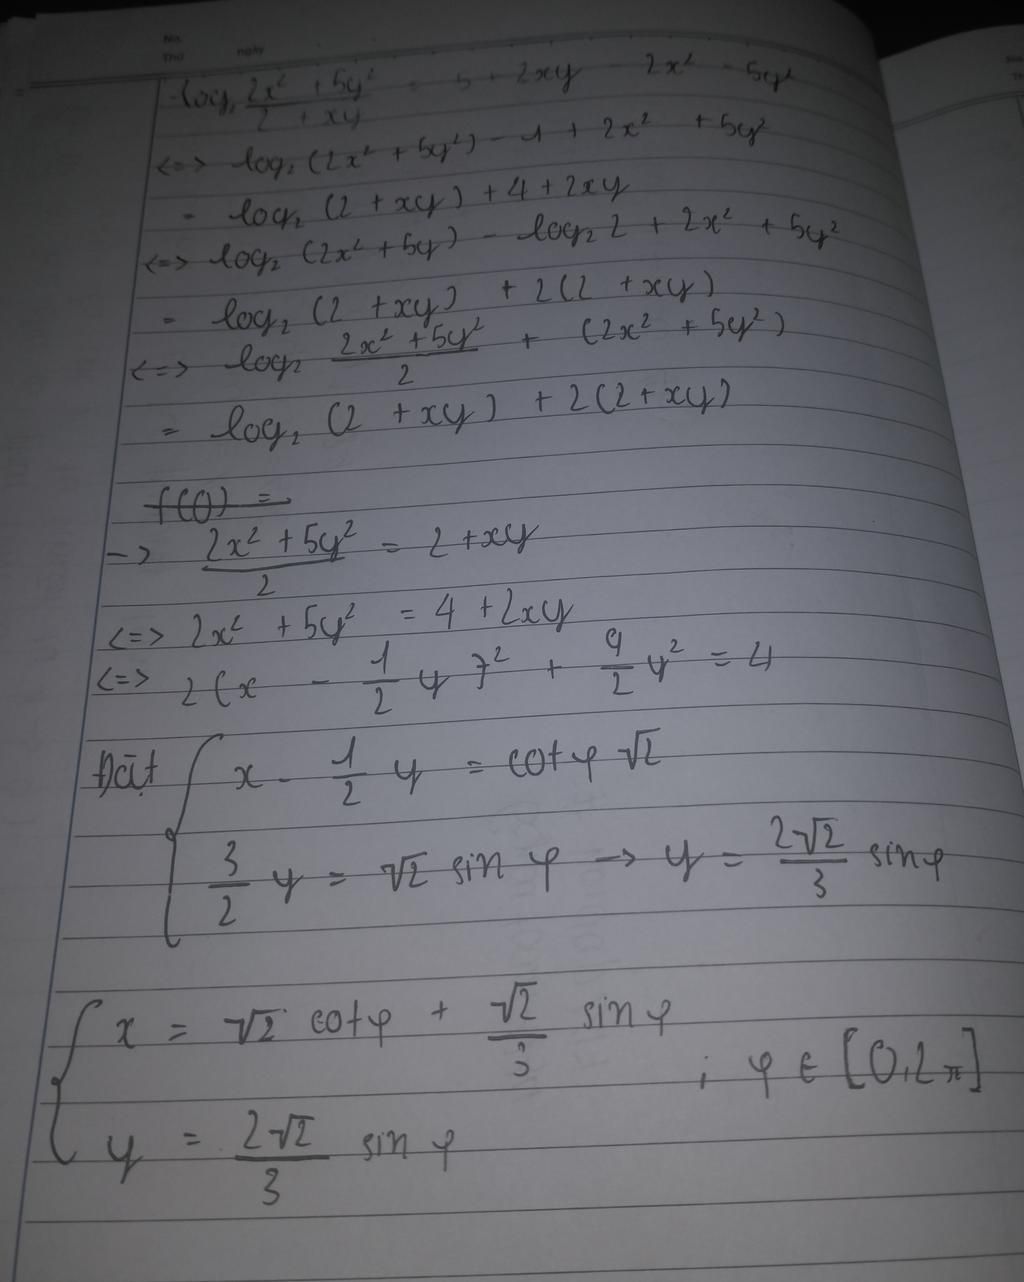 No.
Thứ ngày
log₂ (2x² + 5y²)/(2 + xy) = 5 + 2xy - 2x² - 5y²
<=> log₂ (2x² + 5y²) - 1 + 2x² + 5y²
= log₂ (2 + xy) + 4 + 2xy
<=> log₂ (2x² + 5y) - log₂ 2 + 2x² + 5y²
= log₂ (2 + xy) + 2(2 + xy)
<=> log₂ (2x² + 5y²)/2 + (2x² + 5y²)
= log₂ (2 + xy) + 2(2 + xy)
f(0) =
-> (2x² + 5y²)/2 = 2 + xy
<=> 2x² + 5y² = 4 + 2xy
<=> 2(x - 1/2 y)² + 9/2 y² = 4
Đặt { x - 1/2 y = cotφ √2
3/2 y = √2 sin φ -> y = 2√2/3 sinφ
{ x = √2 cotφ + √2/3 sin φ
; φ ∈ [0,2π]
y = 2√2/3 sin φ